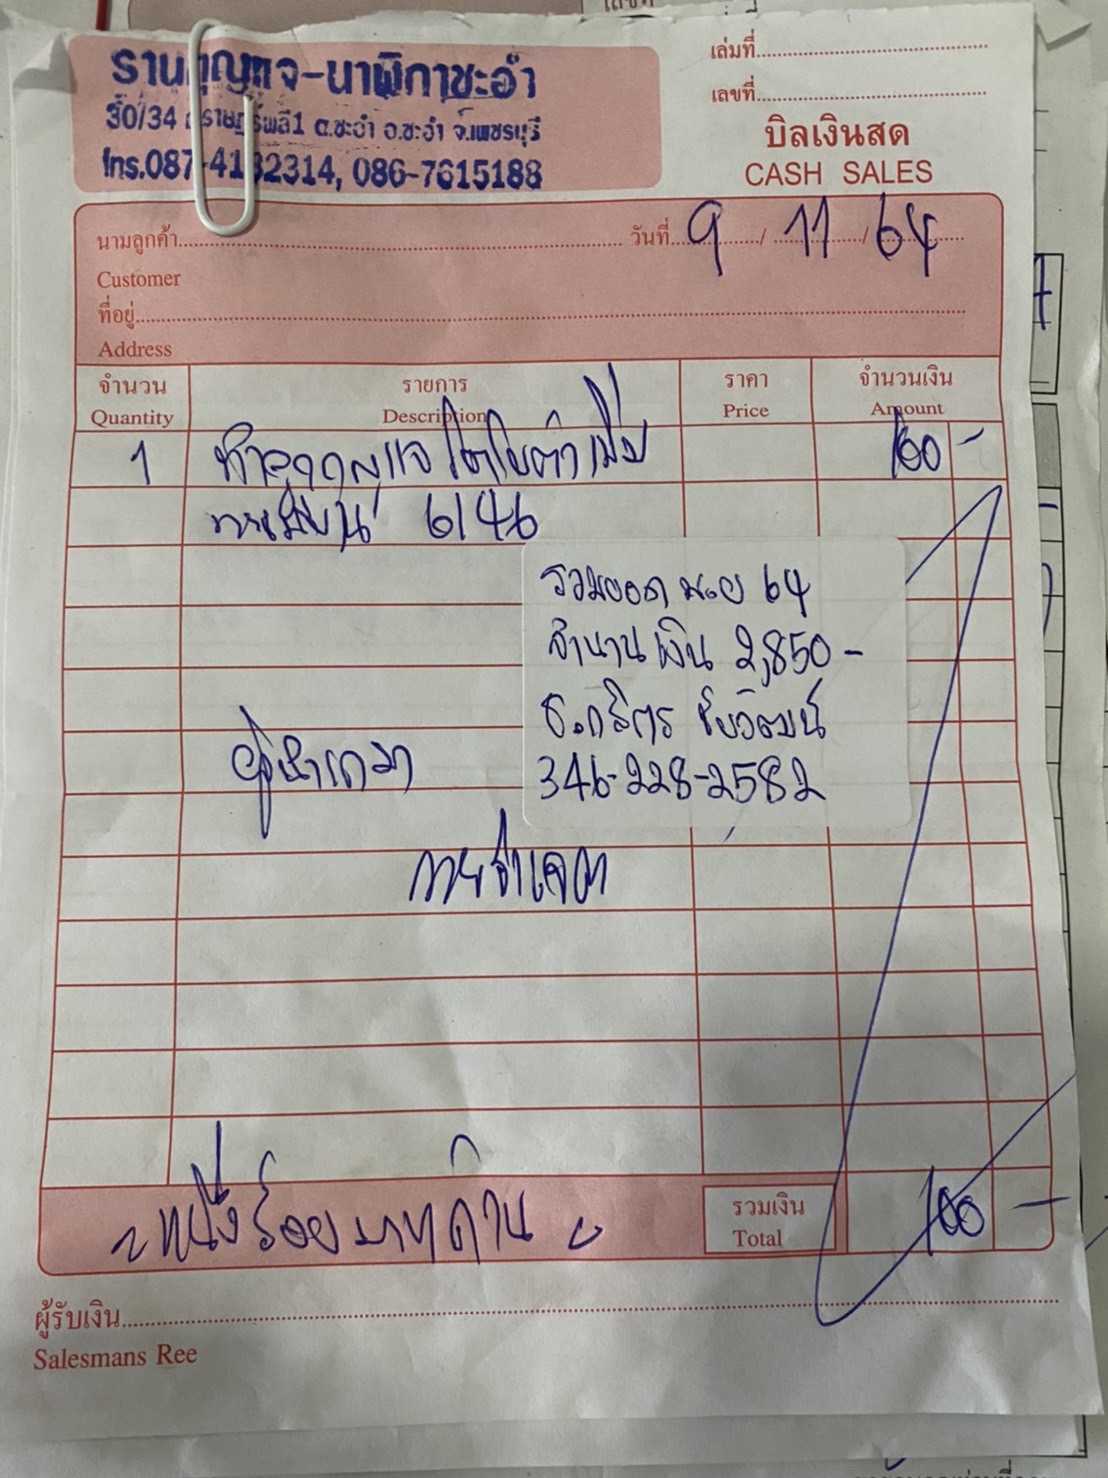 ร้านกุญแจ-นาฬิกาชะอำ
30/34 ถ.ราษฎร์พลี1 ต.ชะอำ อ.ชะอำ จ.เพชรบุรี
โทร.087-4132314, 086-7615188
เล่มที่
เลขที่
บิลเงินสด
CASH SALES
นามลูกค้า วันที่ 9 / 11 / 64
Customer
ที่อยู่
Address
จำนวน รายการ ราคา จำนวนเงิน
Quantity Description Price Amount
1 กุญแจ 100 -
6146
รวมยอด พ.ย 64
จำนวนเงิน 2,850 -
ธ.กสิกร ชัยวัฒน์
346-228-2582
~ หนึ่งร้อยบาทถ้วน ~
รวมเงิน 100 -
Total
ผู้รับเงิน
Salesmans Ree